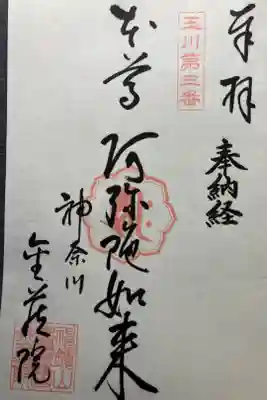 奉拝
奉納経
玉川第三番
本尊 阿弥陀如来
神奈川
金蔵院